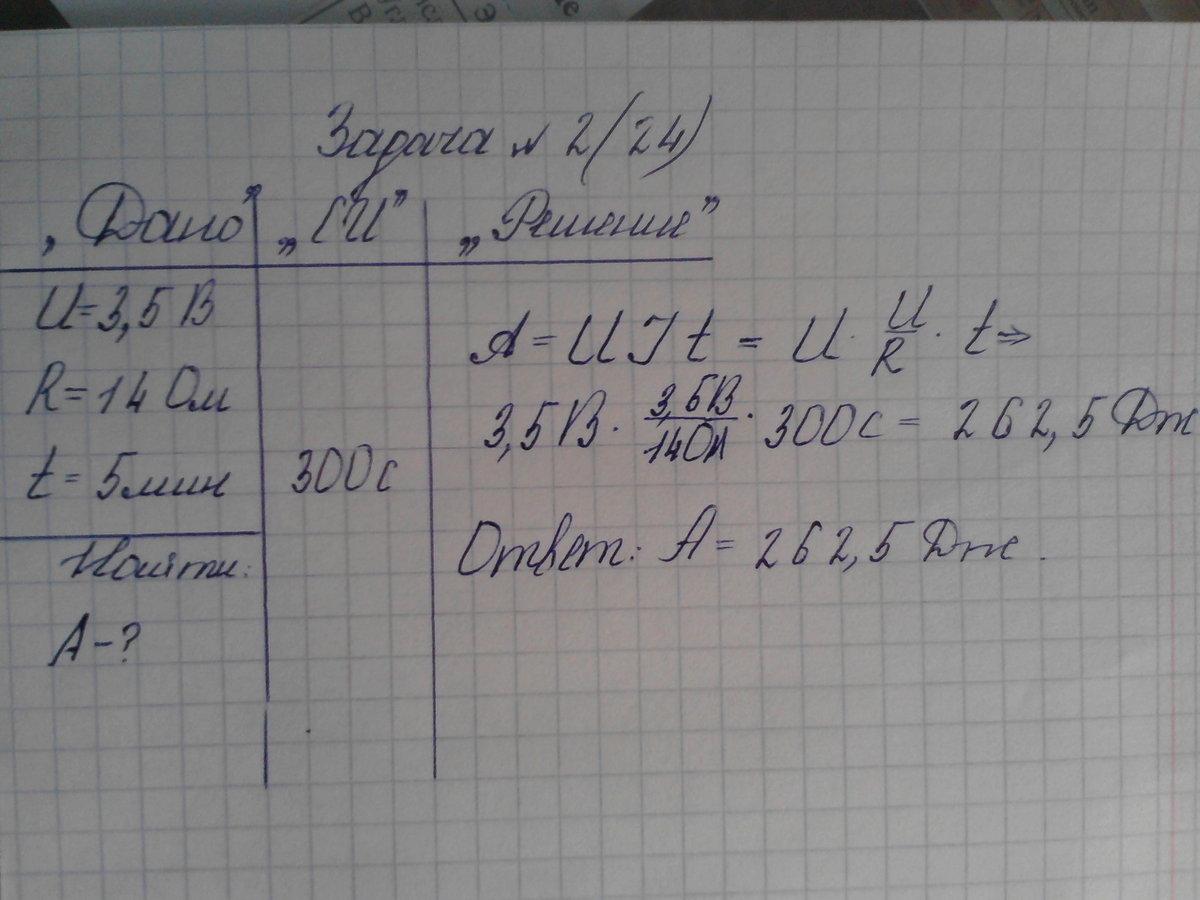 Задача № 2 (24)
„Дано” „СИ” „Решение”
U=3,5 В
R=14 Ом
t=5мин 300с
Найти:
A-?
A=UIt=U·U/R·t⇒
3,5В·3,5В/14Ом·300с=262,5 Дж
Ответ: A=262,5 Дж.